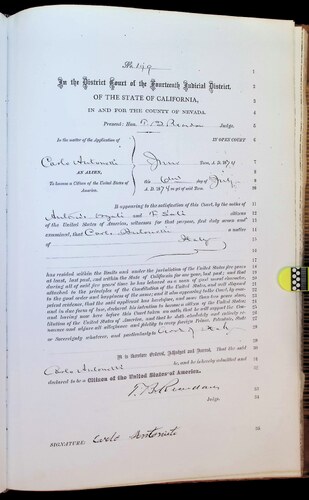 No. 199
In the District Court of the Fourteenth Judicial District,
OF THE STATE OF CALIFORNIA,
IN AND FOR THE COUNTY OF NEVADA.
Present: Hon. T. B. Reardan Judge.
In the matter of the Application of
IN OPEN COURT
Carlo Antonietti
June Term, A. D. 187
AN ALIEN,
this day of July
To become a Citizen of the United States of America.
A. D. 187 , being a day of said Term.
It appearing to the satisfaction of this Court, by the oaths of
Antonio and citizens
of the United States of America, witnesses for that purpose, first duly sworn and
examined, that Carlo a native
of Italy
has resided within the limits and under the jurisdiction of the United States five years
at least, last past, and within the State of California for one year, last past; and that
during all of said five years' time he has behaved as a man of good moral character,
attached to the principles of the Constitution of the United States, and well disposed
to the good order and happiness of the same; and it also appearing to the Court, by com-
petent evidence, that the said applicant has heretofore, and more than two years since,
and in due form of law, declared his intention to become a citizen of the United States;
and having now here before this Court taken an oath that he will support the Con-
stitution of the United States of America, and that he doth absolutely and entirely re-
nounce and abjure all allegiance and fidelity to every foreign Prince, Potentate, State
or Sovereignty whatever, and particularly to of Italy
It is therefore Ordered, Adjudged and Decreed, that the said
Carlo be, and he is hereby admitted and
declared to be a Citizen of the United States of America.
T. B. Reardan
Judge.
SIGNATURE: Carlo